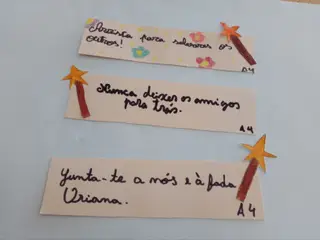 Arrisca para salvares os
outros!
A4
Nunca deixes os amigos
para trás.
A4
Junta-te a nós e à fada
Oriana.
A4